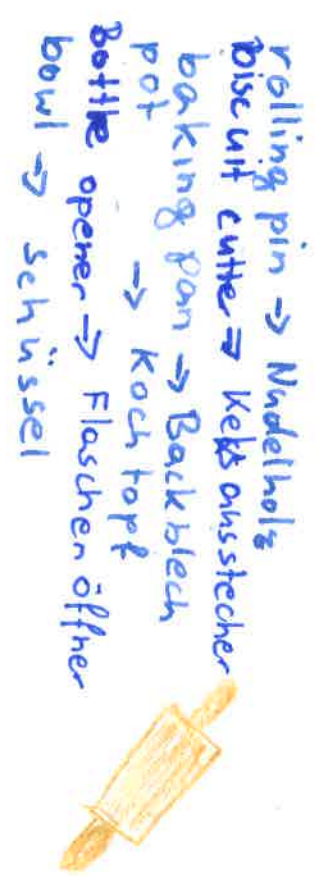 rolling pin → Nudelholz
biscuit cutter → Keksausstecher
baking pan → Backblech
pot → Kochtopf
Bottle opener → Flaschenöffner
bowl → Schüssel